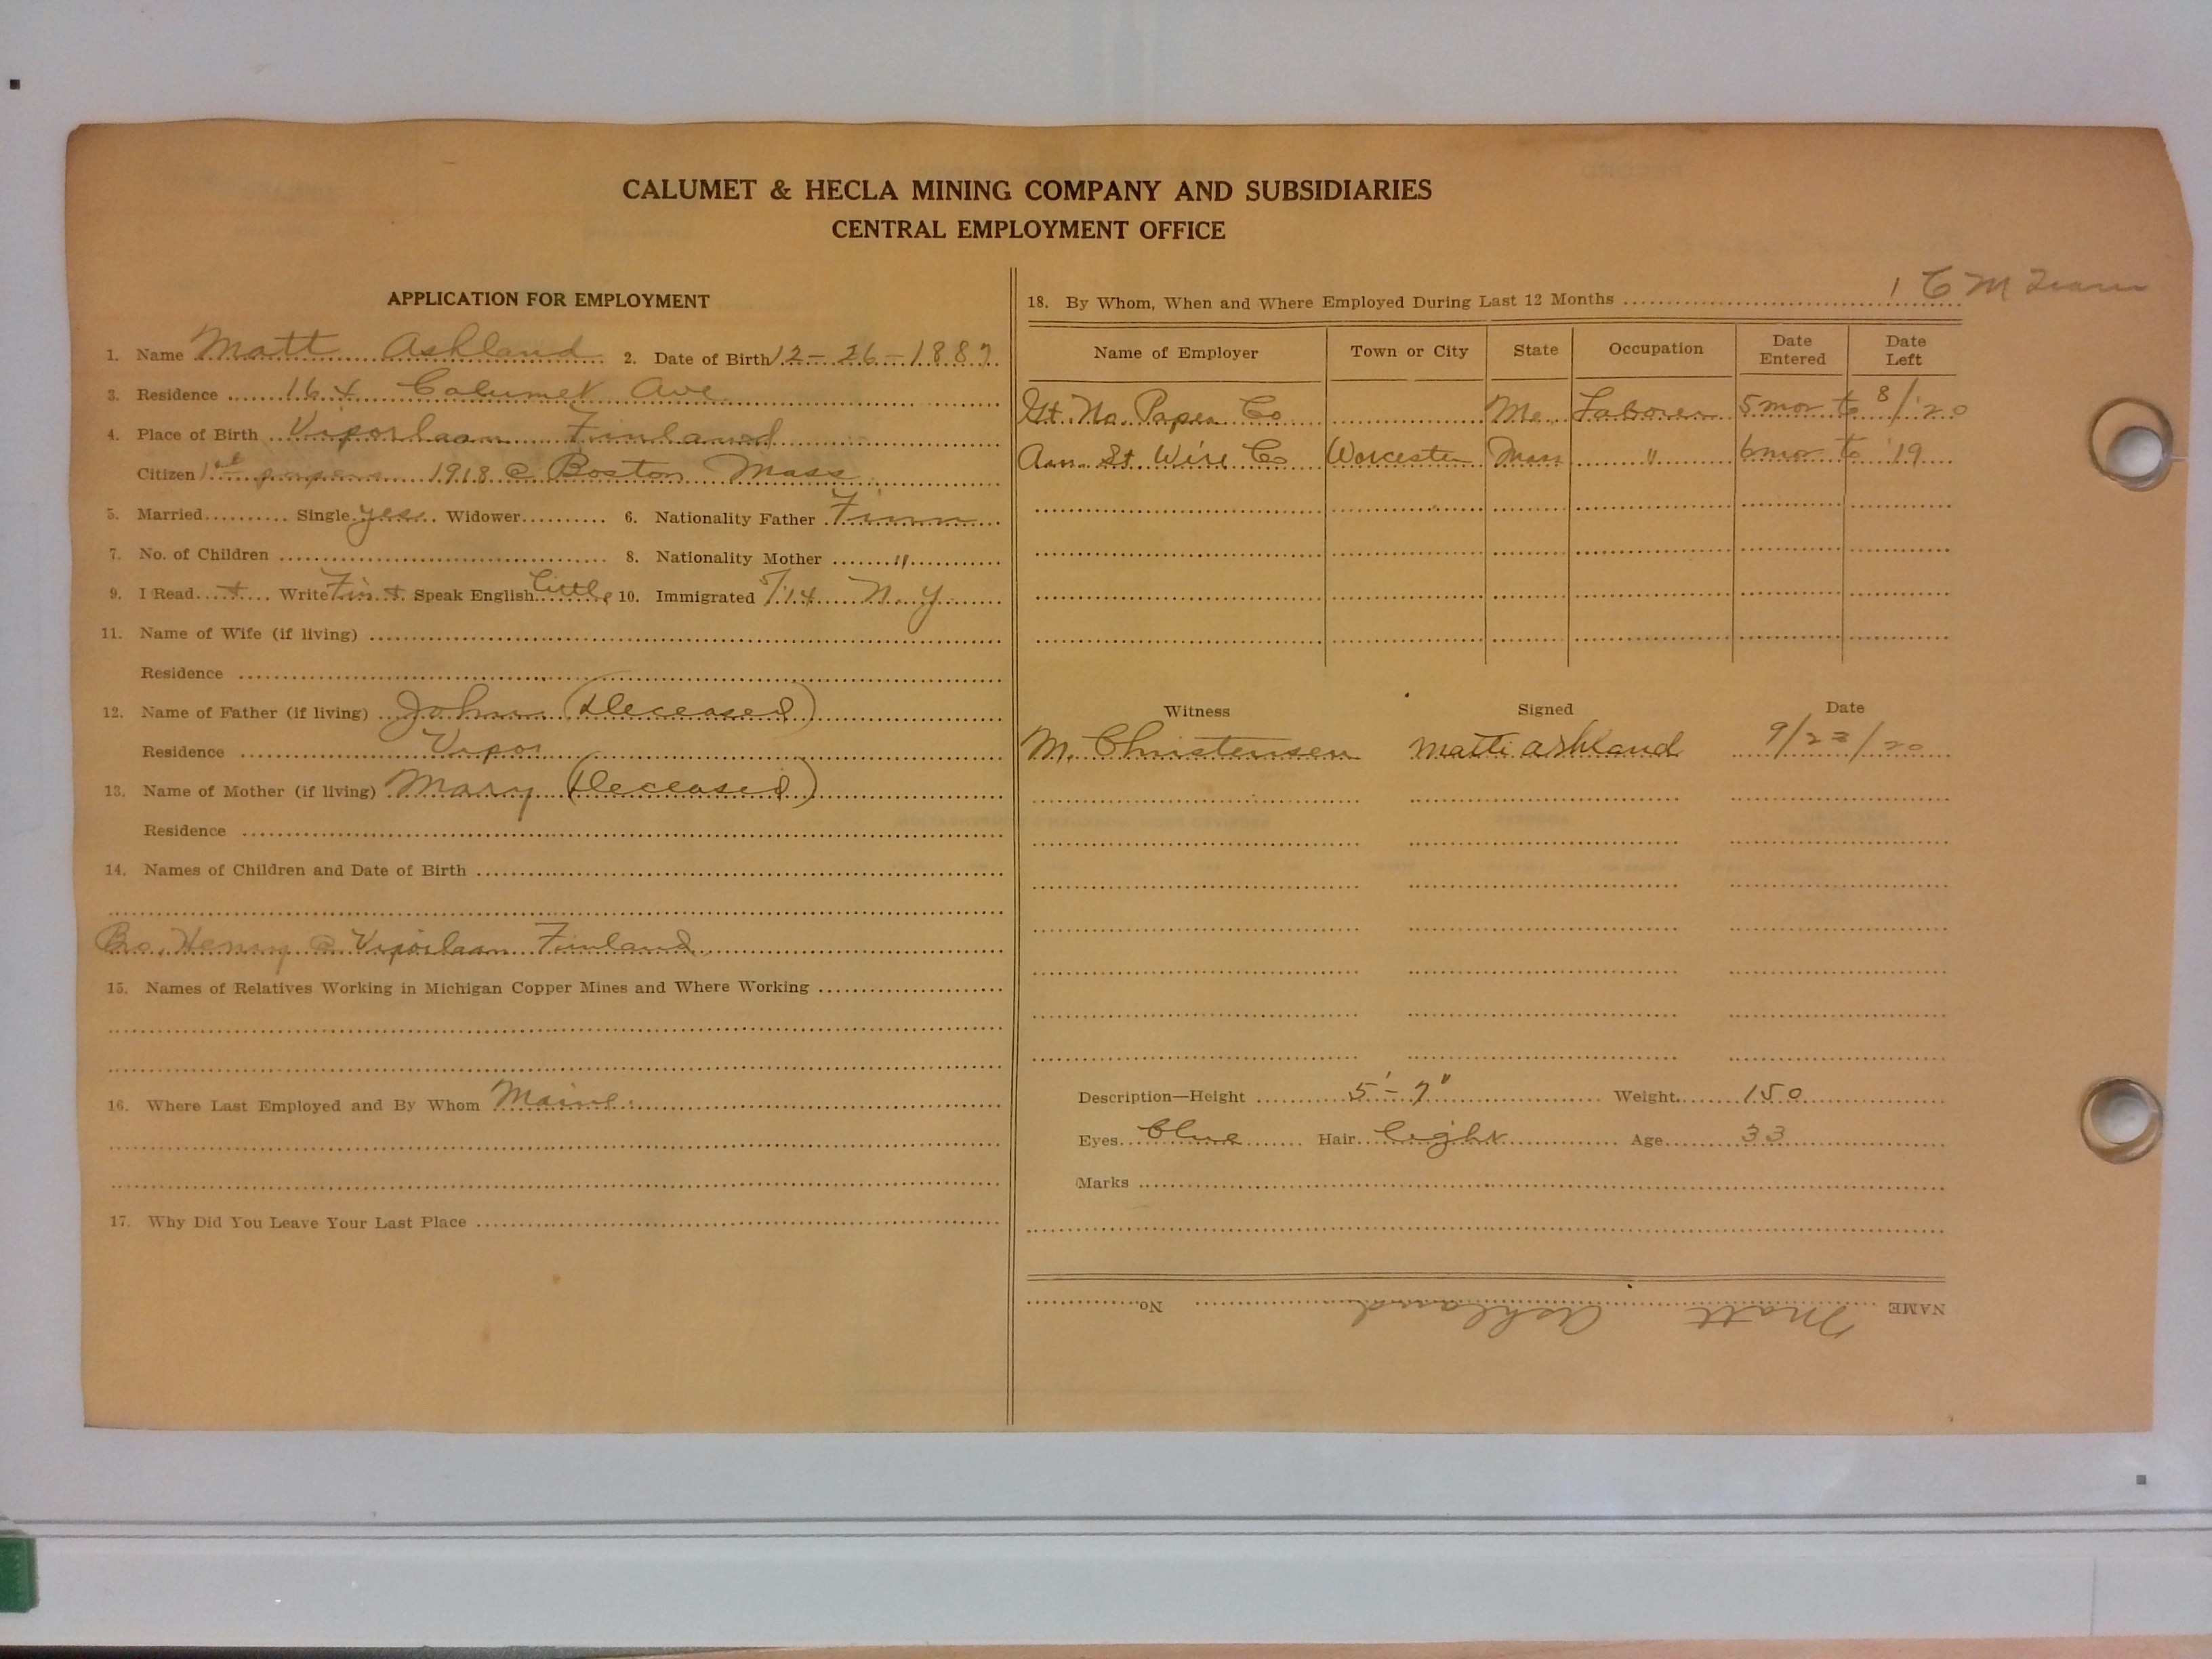 CALUMET & HECLA MINING COMPANY AND SUBSIDIARIES
CENTRAL EMPLOYMENT OFFICE
APPLICATION FOR EMPLOYMENT
1. Name Matt Ashland 2. Date of Birth 12-26-1887
3. Residence 164 Calumet Ave
4. Place of Birth Finland
Citizen 1st papers 1918 @ Boston Mass
5. Married Single yes Widower 6. Nationality Father Finn
7. No. of Children 8. Nationality Mother "
9. I Read + Write Fin + Speak English Little 10. Immigrated 5/14 N.Y.
11. Name of Wife (if living)
Residence
12. Name of Father (if living) John (Deceased)
Residence
13. Name of Mother (if living) Mary (Deceased)
Residence
14. Names of Children and Date of Birth
Bro. Henry @ Finland
15. Names of Relatives Working in Michigan Copper Mines and Where Working
16. Where Last Employed and By Whom Maine
17. Why Did You Leave Your Last Place
1 C M
18. By Whom, When and Where Employed During Last 12 Months
Name of Employer Town or City State Occupation Date Entered Date Left
Gt. No. Paper Co Me. Laborer 5 mos to 8/20
Am. St. Wire Co Worcester Mass " 6 mos to '19
Witness Signed Date
M. Christensen Matti Ashland 9/22/20
Description—Height 5'-7" Weight 150
Eyes blue Hair light Age 33
Marks
NAME Matt Ashland No.